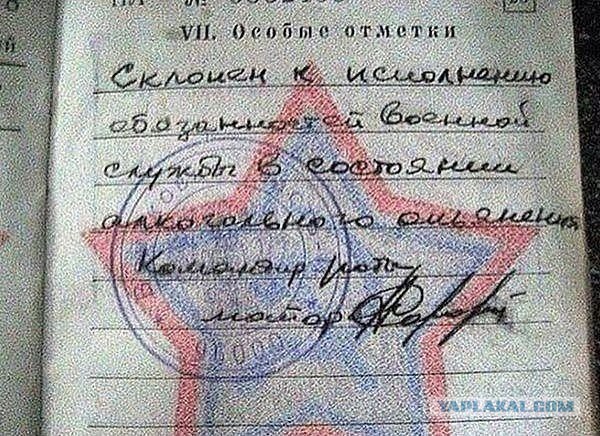 VII. Особые отметки
Склонен к исполнению
обязанностей военной
службы в состоянии
алкогольного опьянения
Командир роты
майор
YAPLAKAL.COM